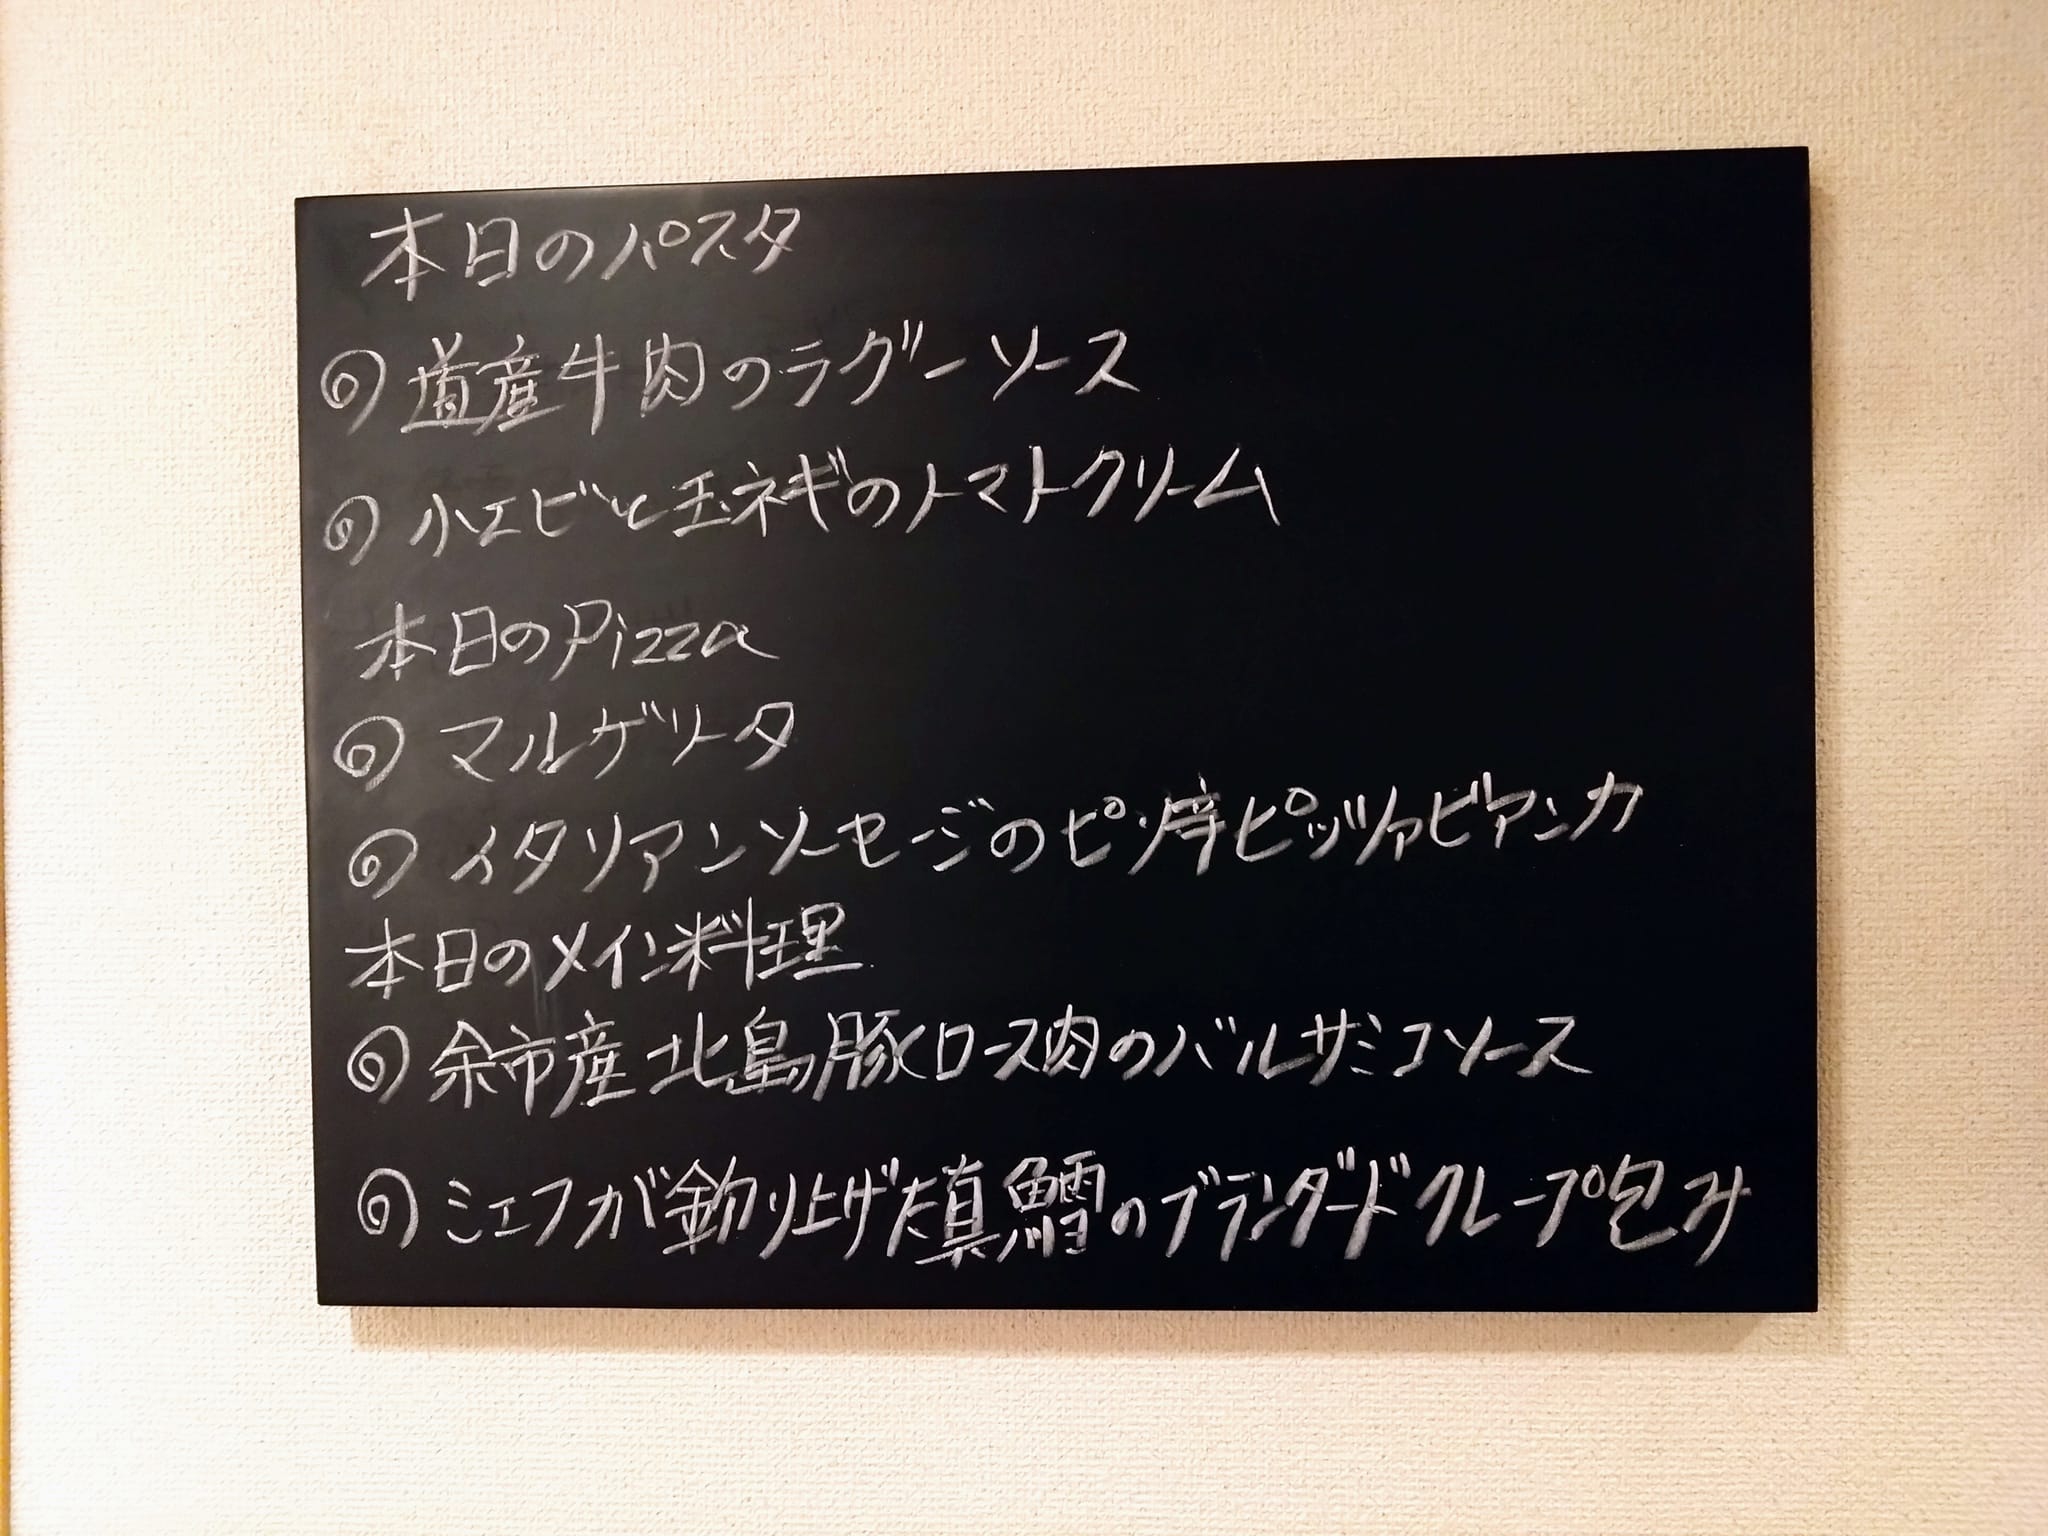 本日のパスタ
◎ 道産牛肉のラグーソース
◎ 小エビと玉ネギのトマトクリーム
本日のPizza
◎ マルゲリータ
◎ イタリアンソーセージのピッツァビアンカ
本日のメイン料理
◎ 余市産北島豚ロース肉のバルサミコソース
◎ シェフが釣り上げた真鱈のブランダードクレープ包み